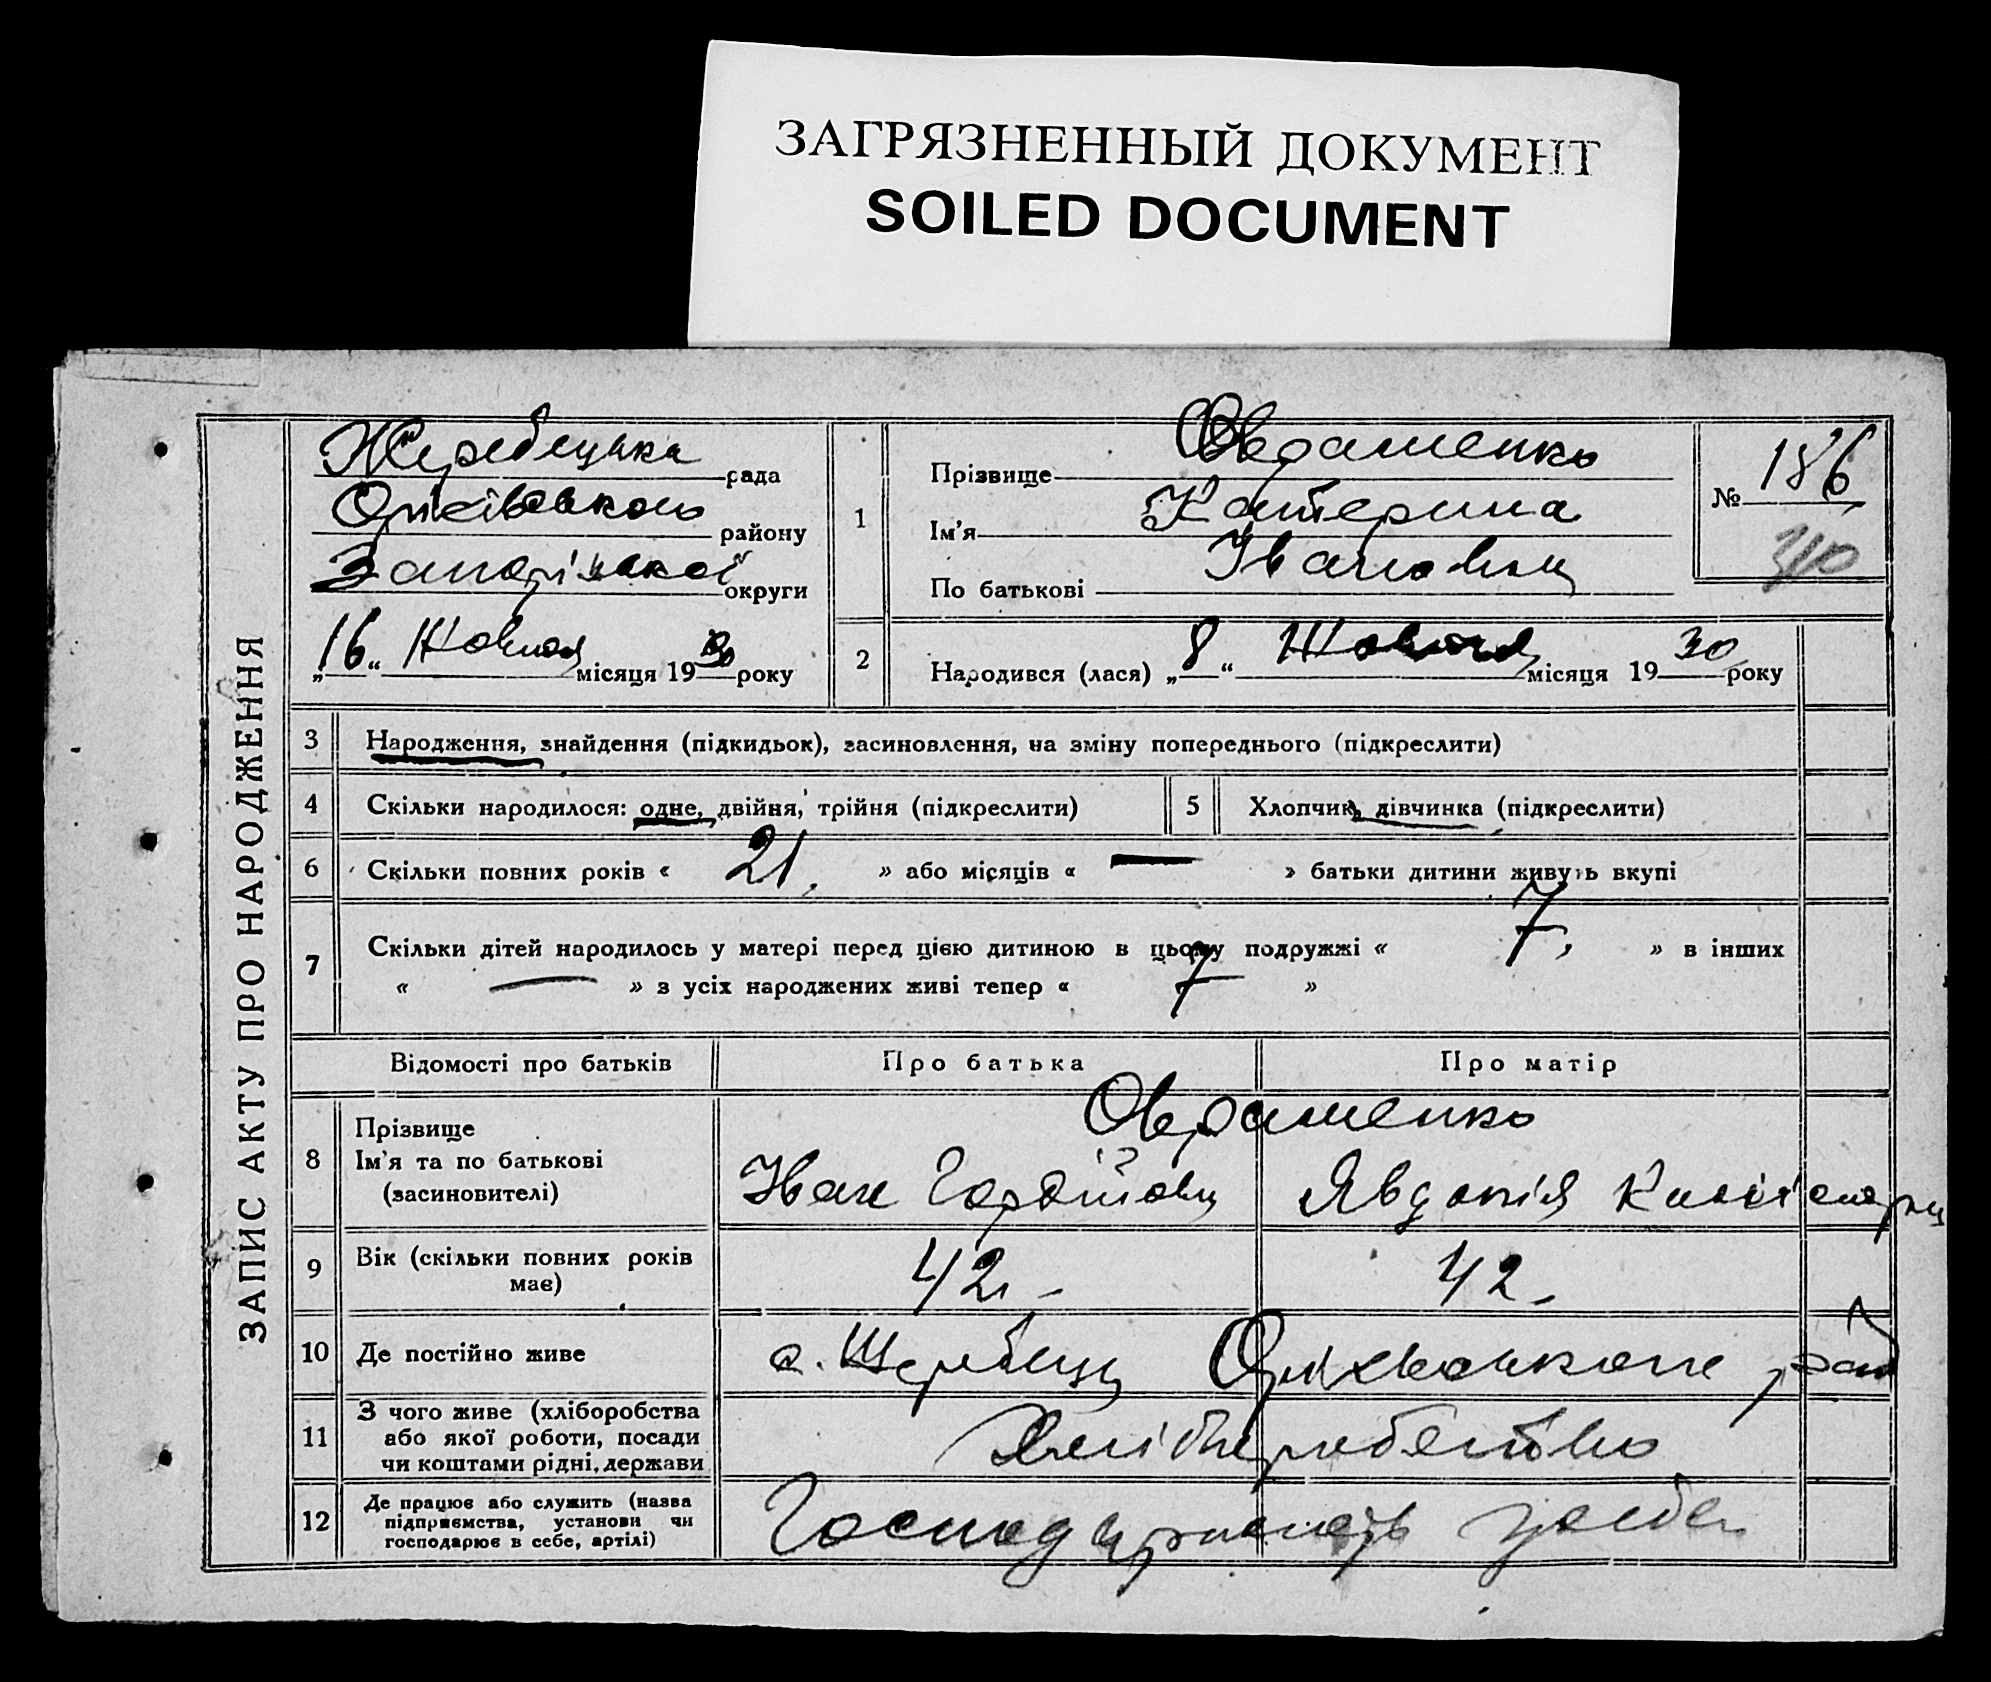 ЗАГРЯЗНЕННЫЙ ДОКУМЕНТ
SOILED DOCUMENT
ЗАПИС АКТУ ПРО НАРОДЖЕННЯ
Жеребецька рада
Оріхівського району
Запорізької округи
„16“ Жовтня місяця 1930 року
1
Прізвище
Ім'я Катерина
По батькові Івановна
№ 186
2 Народився (лася) „8“ Жовтня місяця 1930 року
3 Народження, знайдення (підкидьок), засиновлення, на зміну попереднього (підкреслити)
4 Скільки народилося: одне, двійня, трійня (підкреслити)
5 Хлопчик, дівчинка (підкреслити)
6 Скільки повних років « 21 » або місяців « — » батьки дитини живуть вкупі
7 Скільки дітей народилось у матері перед цією дитиною в цьому подружжі « 7, » в інших
« — » з усіх народжених живі тепер « 7 »
Відомості про батьків
Про батька
Про матір
8 Прізвище
Ім'я та по батькові
(засиновителі)
Іван Гордійович
Явдокія
9 Вік (скільки повних років
має)
42 -
42 -
10 Де постійно живе
с. Жеребець Оріхівського рай
11 З чого живе (хліборобства
або якої роботи, посади
чи коштами рідні, держави
Хліборобство
12 Де працює або служить (назва
підприємства, установи чи
господарює в себе, артілі)